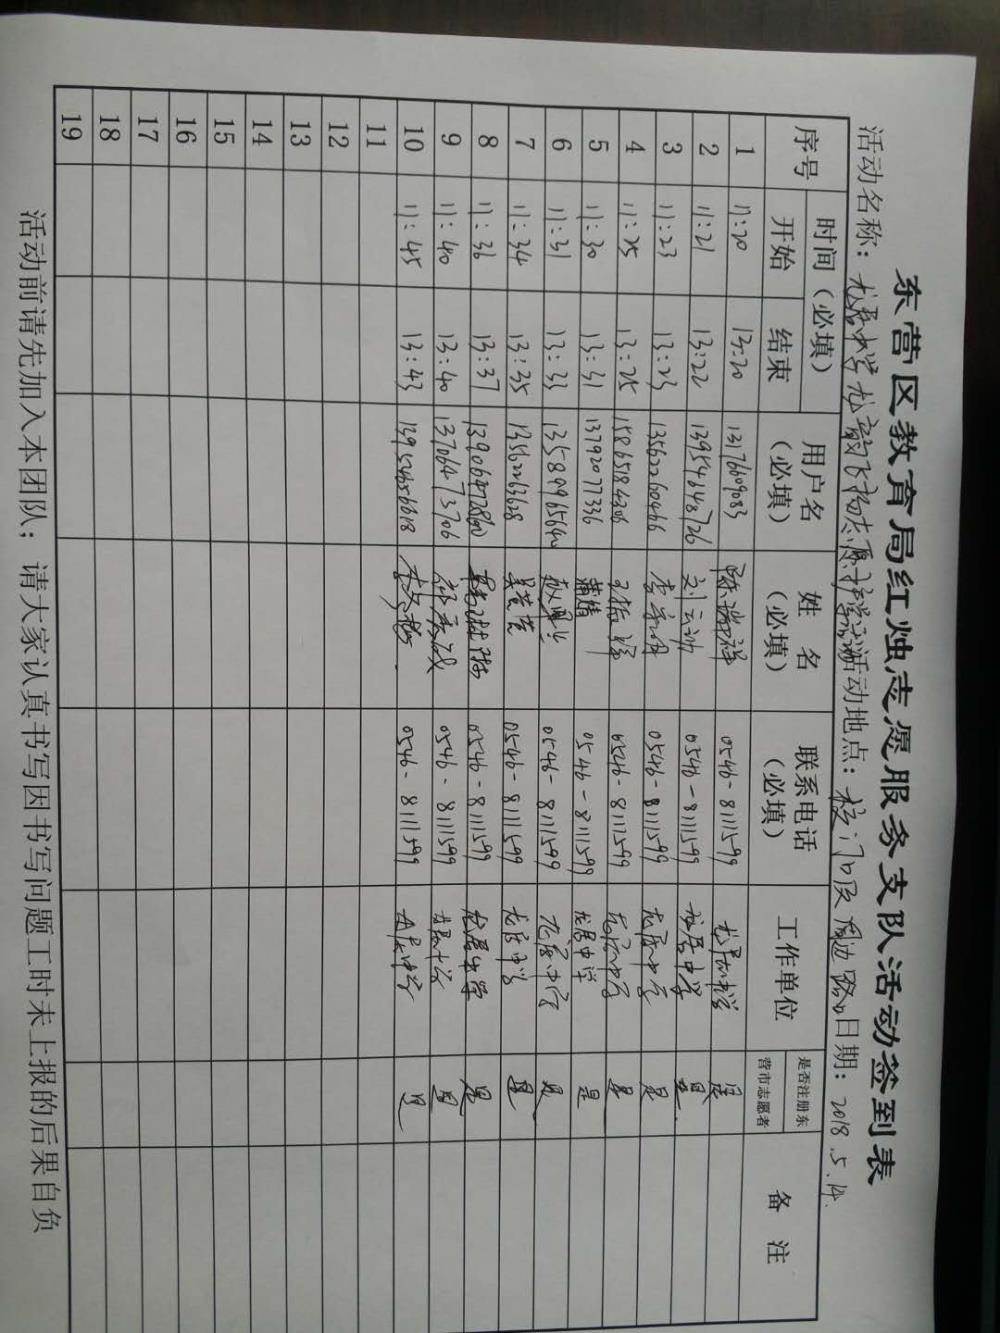 东营区教育局红烛志愿服务支队活动签到表
活动名称：龙居中学 活动地点：校门口及周边路口 日期：2018.5.14.
序号 时间（必填） 用户名（必填） 姓 名（必填） 联系电话（必填） 工作单位 是否注册东营市志愿者 备 注
开始 结束
1 11:20 13:20 13176609083 陈瑞祥 0546-8111599 龙居中学 是
2 11:21 13:22 13954648726 刘云 0546-8111599 龙居中学 是
3 11:23 13:23 13562260466 李 0546-8111599 龙居中学 是
4 11:25 13:25 0546-8111599 龙居中学 是
5 11:30 13:31 13792077336 蒲婧 0546-8111599 龙居中学 是
6 11:31 13:33 0546-8111599 龙居中学 是
7 11:34 13:35 13562263628 吴 0546-8111599 龙居中学 是
8 11:36 13:37 0546-8111599 龙居中学 是
9 11:40 13:40 13706473706 0546-8111599 龙居中学 是
10 11:45 13:43 0546-8111599 龙居中学 是
11
12
13
14
15
16
17
18
19
活动前请先加入本团队；请大家认真书写因书写问题工时未上报的后果自负